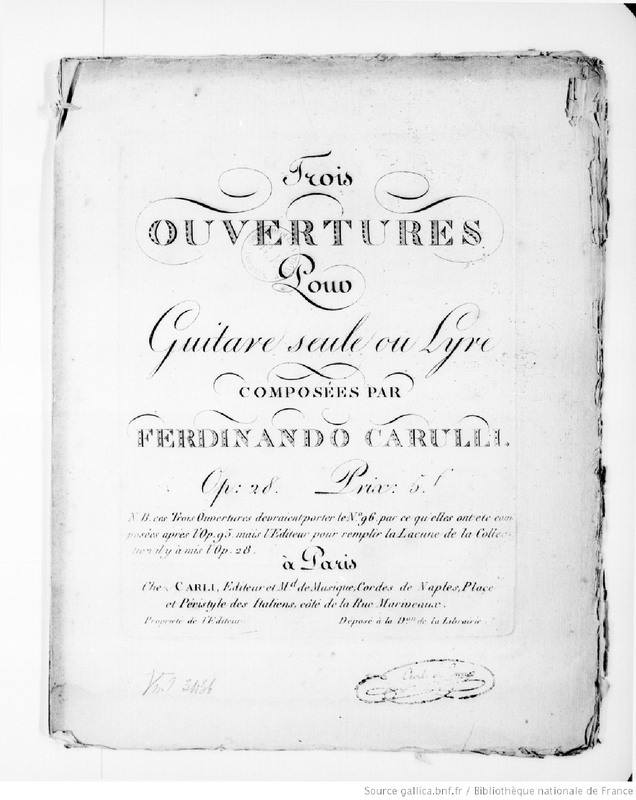 Trois
OUVERTURES
Pour
Guitare seule ou Lyre
COMPOSÉES PAR
FERDINANDO CARULLI.
Op: 28. Prix: 5.f
N.B. ces Trois Ouvertures devraient porter le No. 96, par ce qu'elles ont été com
posées après l'Op. 95. mais l'Editeur pour remplir la Lacune de la Collec-
tion il y à mis l'Op. 28.
à Paris
Chez CARLI, Editeur et Md. de Musique, Cordes de Naples, Place
et Péristyle des Italiens, côté de la Rue Marivaux.
Propriété de l'Editeur. Déposé à la Don. de la Librairie
Source gallica.bnf.fr / Bibliothèque nationale de France